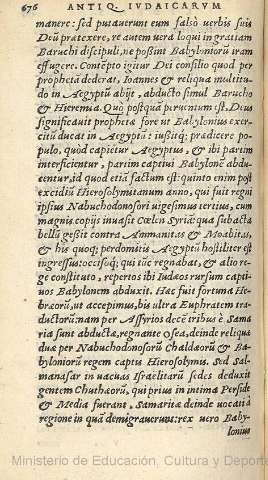 676 ANTIQ. IVDAICARVM
manere: sed putauerunt eum falsò verbis suis
Deũ prætexere, re autem vera loqui in gratiam
Baruchi discipuli, ne possint Babyloniorũ iram
effugere. Contẽpto igitur Dei consilio quod per
prophetã dederat, Ioannes & reliqua multitu-
do in Aegyptũ abijt, abducto simul Barucho
& Hieremia. Quò postquã peruentum est, Deus
significauit prophetæ fore ut Babylonius exer-
citũ ducat in Aegyptũ: iussitq; prædicere po-
pulo, quòd capietur Aegyptus, & ibi partim
interficientur, partim captiui Babylonẽ abdu-
centur, id quod etiã factum est: quinto enim post
excidiũ Hierosolymitanum anno, qui fuit regni
ipsius Nabuchodonosori uigesimus tertius, cum
magnis copijs inuasit Cœlen Syriã: qua subacta
bellũ gessit contra Ammanitas & Moabitas,
& his quoq; perdomitis Aegyptũ hostiliter est
ingressus: occisoq; qui tũc regnabat, & alio re-
ge constituto, repertos ibi Iudæos rursum capti-
uos Babylonem abduxit. Hac fuit fortuna He-
bræorũ, ut accepimus, bis ultra Euphratem tra-
ductorũ: nam per Assyrios decẽ tribus è Sama
ria sunt abductæ, regnante Osea, deinde reliquæ
duæ per Nabuchodonosorũ Chaldæorũ & Ba-
byloniorũ regem captis Hierosolymis. Sed Sal-
manasar in uacuas Israelitarũ sedes deduxit
gentem Chuthæorũ, qui prius in intima Perside
& Media fuerant, Samaritæ deinde vocati à
regione in quã demigrauerunt: rex uero Baby-
lonius
Ministerio de Educación, Cultura y Deporte